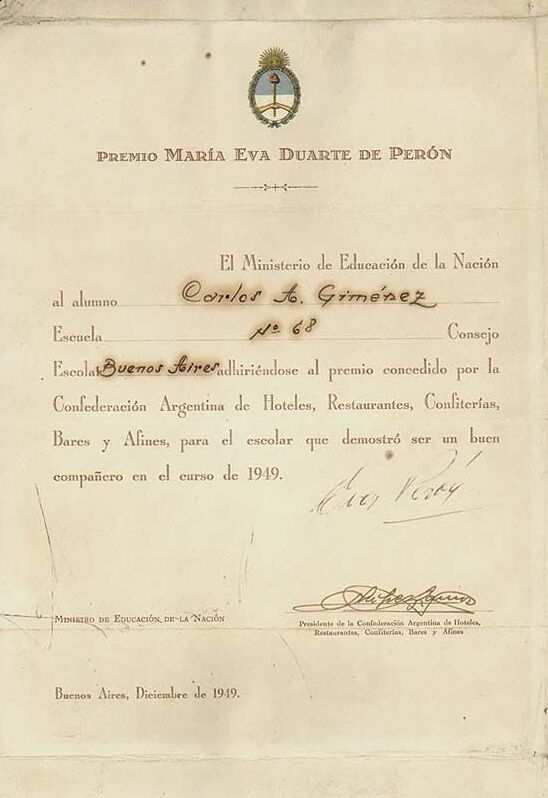 PREMIO MARÍA EVA DUARTE DE PERÓN
El Ministerio de Educación de la Nación
al alumno Carlos A. Giménez
Escuela Nº 68 Consejo
Escolar Buenos Aires adhiriéndose al premio concedido por la
Confederación Argentina de Hoteles, Restaurantes, Confiterías,
Bares y Afines, para el escolar que demostró ser un buen
compañero en el curso de 1949.
Eva Perón
MINISTRO DE EDUCACIÓN DE LA NACIÓN
Presidente de la Confederación Argentina de Hoteles,
Restaurantes, Confiterías, Bares y Afines
Buenos Aires, Diciembre de 1949.